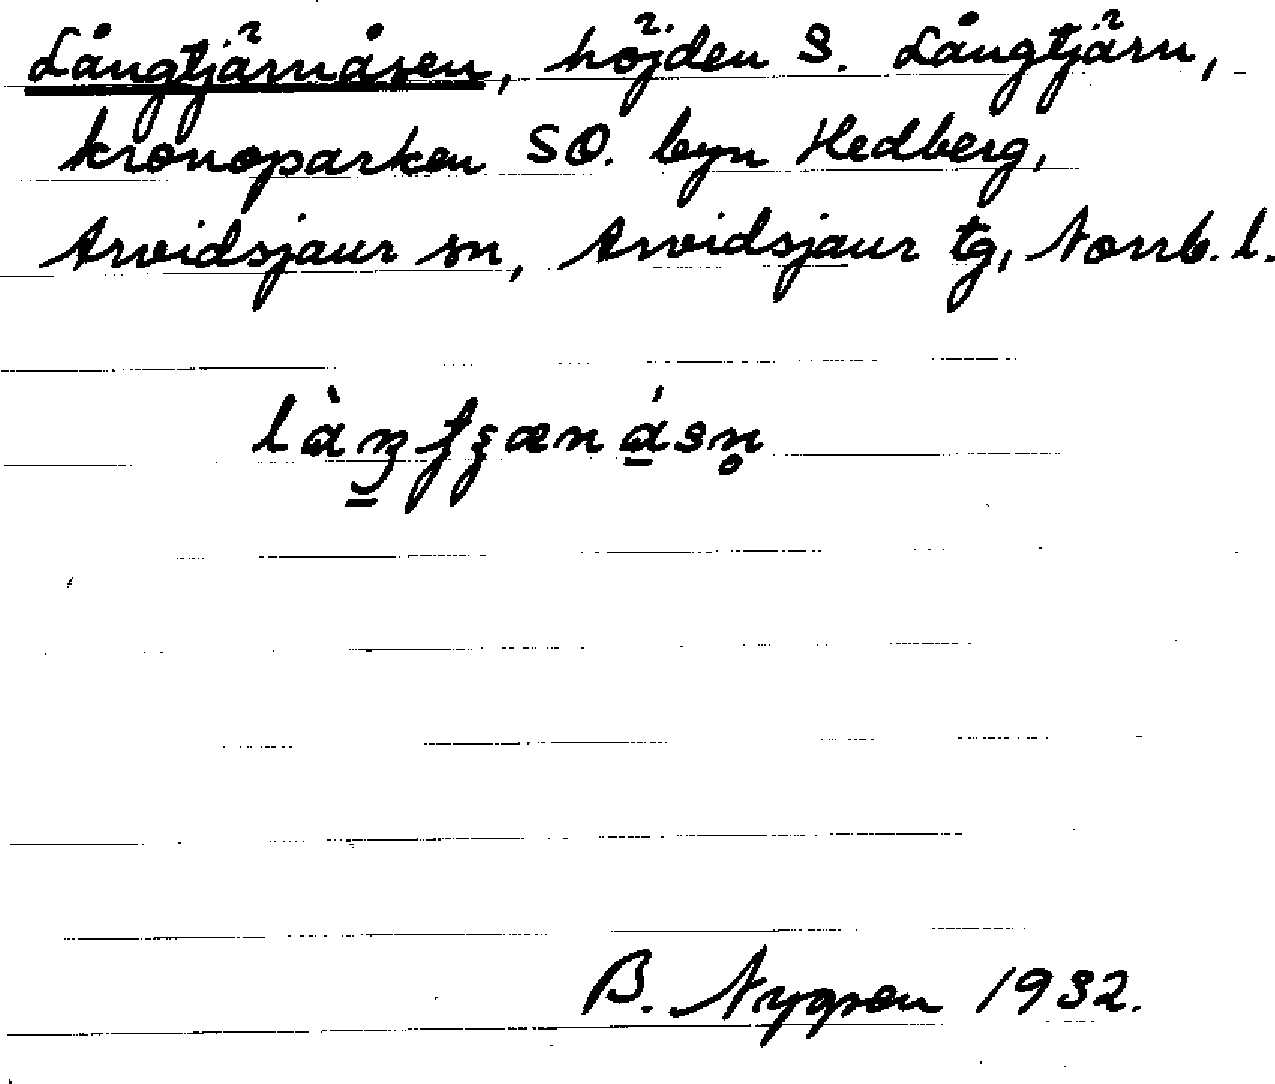 Långtjärnåsen, höjden S. Långtjärn,
kronoparken SO. byn Hedberg,
Arvidsjaur sn, Arvidsjaur tg, Norrb. l.
B. Nygren 1932.